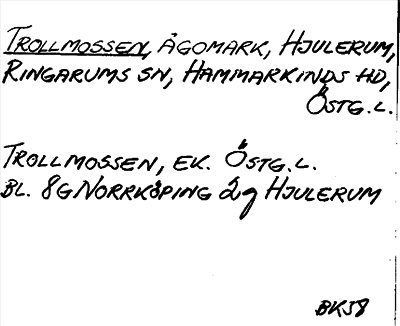 TROLLMOSSEN, ÄGOMARK, HJULERUM,
RINGARUMS SN, HAMMARKINDS HD,
ÖSTG. L.
TROLLMOSSEN, EK. ÖSTG. L.
BL. 8G NORRKÖPING 2g HJULERUM
BK58